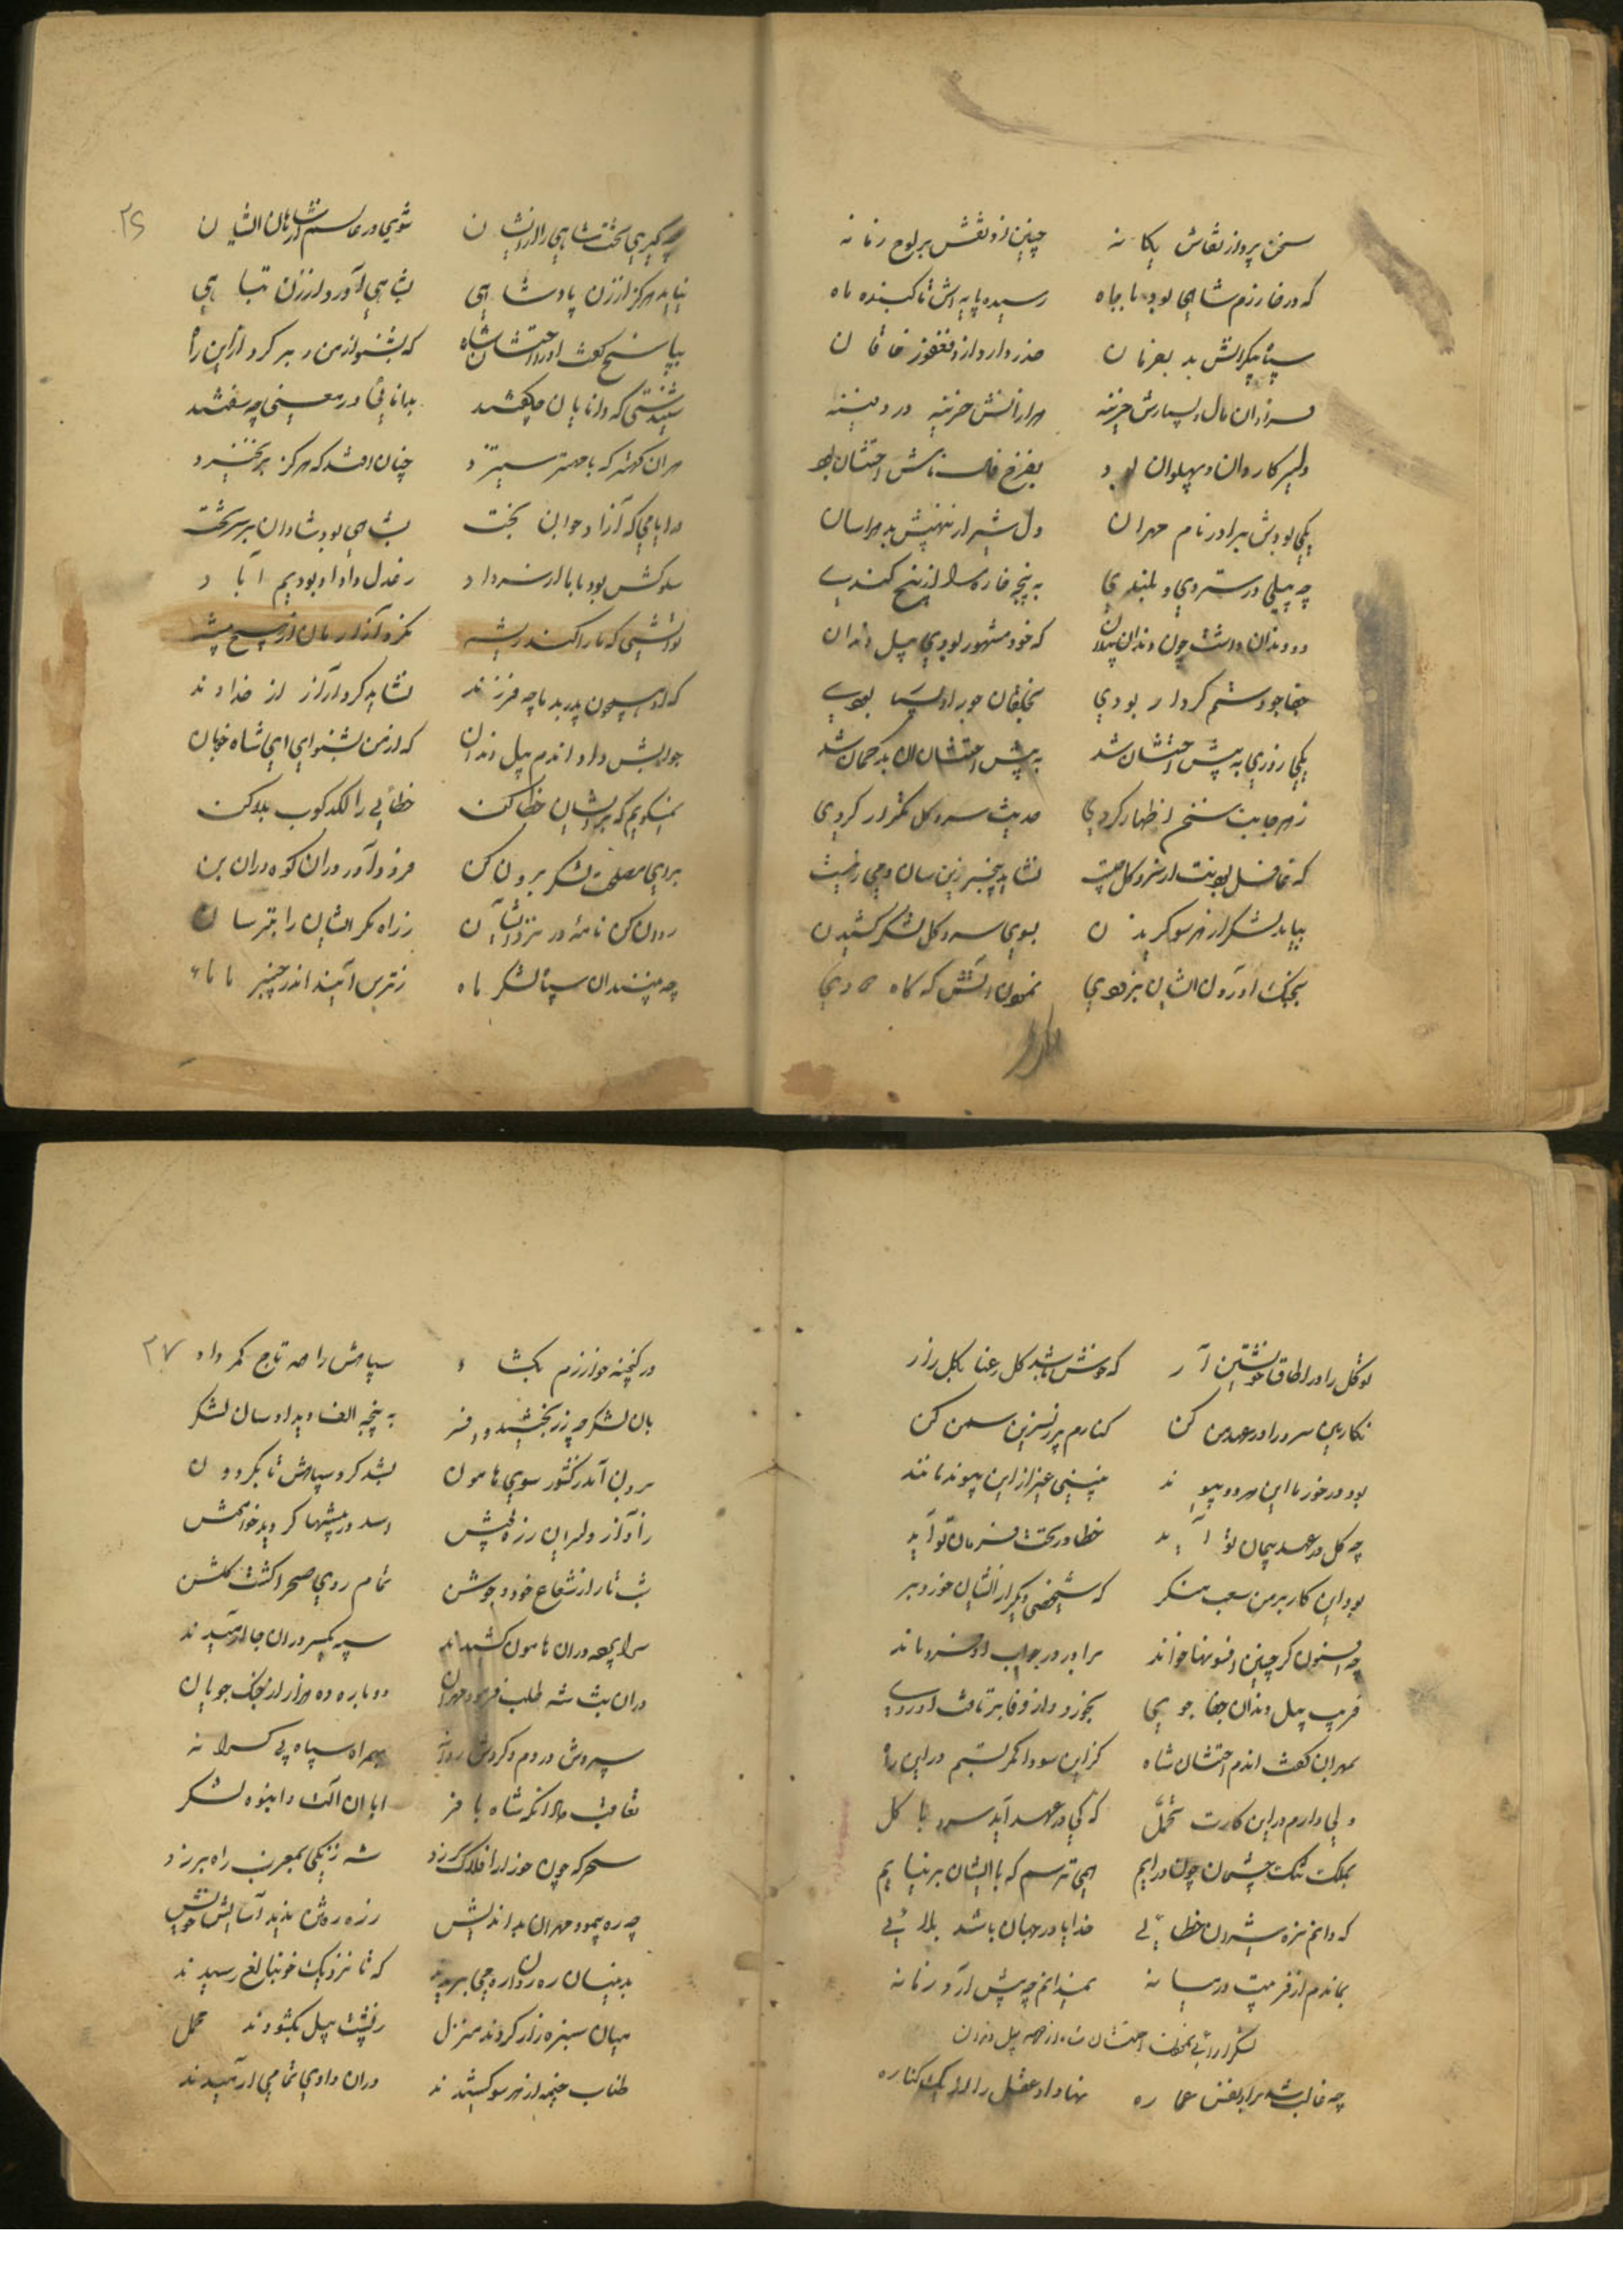 سخن پرداز نقاش یکانه چنین زد نقش بر لوح زمانه
که در خارزم شاهی بود با جاه رسیده پایه اش تا کنبده ماه
سپاه بیکرانش بد بفرمان حذر دار و از و فغفور خاقان
فراوان مال و بسیارش خزینه هزارانش خزینه در دفینه
دلیر کاروان و پهلوان بود بفرخ فال نامش احتشان بود
یکی بودش برادر نام مهران دل شیر از نهیبش بد هراسان
چه پیلی در ستردی و بلندی به پنجه خاره را از بیخ کندی
دو دندان داشت چون دندان پیلان که خود مشهور بودی پیل دندان
جفا جو و ستم کردار بودی بخلقان جور او بسیا بودی
یکی روزی به پیش احتشان شد به پیش احتشان آن بد کمان شد
ز هر جانب سخن اظهار کردی حدیث سرو کل تکرار کردی
که غافل بودنت از سرو کل چیست نشاید بیخبر زین سان دمی زیست
بباید لشکر از هر سو کریدن بسوی سرو کل لشکر کشیدن
بجنک آوردن ایشان بزودی نمودن آتش که کاه دودی
چه کیری تخت شاهی را از ایشان شوی در عالم از شاهان ایشان
نیاید هرکز از زن پادشاهی بشاهی آورد از زن تباهی
بپاسخ کفت او را احتشان شاه که بشنو از من و بر کرد از این راه
شنیدستی که دانایان چه کفتند بدانائی در معنی چه سفتند
هر آن کهتر که با مهتر ستیزد چنان افتد که هرکز بر نخیزد
در ایامی که آزاد جوان بخت بشاهی بود شادان بر سر تخت
سلوکش بود با بابا از سر داد ز عدل و داد او بودیم آباد
نداشتی که ما را کند ریشه نکرد آزار مان از هیچ پیشه
که او همچون پدر بد ما چه فرزند نشاید کرد آزار از خداوند
جوابش داد اندم پیل دندان که از من بشنو ای ای شاه خوبان
نمیکویم که بر ایشان خطا کن خطائی را لکدکوب بلا کن
بروی مصلحت لشکر برون کن فرود آور دران کوه دران بن
روان کن نامه در نزد ایشان ز راه مکر ایشان را بترسان
چه بینندان سپاه لشکر ماه ز ترس آیند اندر چنبر ماه
۲۶
تو کل را در اطاق خویشتن آر که خوش باشد کل رعنا بکل زار
نکارین سرو را در عهد من کن کنارم پر ز نسرین سمن کن
بود در خورد ما این هر دو پیوند نبینی غیر از این پیوند مانند
چه کل در عهد پیمان تو آید خطا در تحت فرمان تو آید
بود این کار بر من سعب منکر که شخصی دیکر از ایشان خورد بر
چه افسون کر چنین افسونها خواند برادر در جواب او فرو ماند
فریب پیل دندان جفا جوی بخورد و از وفا برتافت او روی
بمهران کفت اندم احتشان شاه کزاین سودا کمر بستیم در این راه
ولی دارم در این کارت تحمل که کی در عهد آید سرو با کل
بملک تنک چشمان چون در ایم همی ترسم که با ایشان بر نیایم
که دانم نزد شیرون خطائی خدایا در جهان باشد بلائی
بماندم از فریبت در میانه نمیدانم چه پیش آرد زمانه
لشکر آرائی احتشان شاه از جهه پیل دندان
چه غالب شد بر او نفس عماره نهاد او عقل را از یک کناره
در کنجینه خوارزم بکشاد سپاهش را همه تاج کمر داد
بان لشکر چه زر بخشید و افسر به پنجه الف دید او سان لشکر
برون آمد ز کشور سوی هامون بشد کرد سپاهش تا بکردون
ز آواز دلیران رزه پیش اسد در بیشها کردید خاموش
شب تار از شعاع خود و جوشن تمام روی صحرا کشت کلشن
سراپرده دران هامون کشیدند سپه یکسر دران جا آرمیدند
دران شب شه طلب فرمود مهران دوباره ده هزار از جنک جویان
سپردش در دم و کردش روانه بهمراه سپاه بی کرانه
تعاقب هم آنکه شاه با فر ابا ان آلت و انبوه لشکر
سحرکه چون خور از افلاک سر زد شه زنکی بمغرب راه بر زد
چه ره پیمود مهران بد اندیش رزه ره ش ندید آسایش خویش
بدینسان ره روان ره می بریدند که تا نزدیک خونبالغ رسیدند
میان سبزه زار کردند منزل ز پشت پیل بکشودند محمل
طناب خیمه از هر سو کشیدند دران وادی تمامی آرمیدند
۲۷